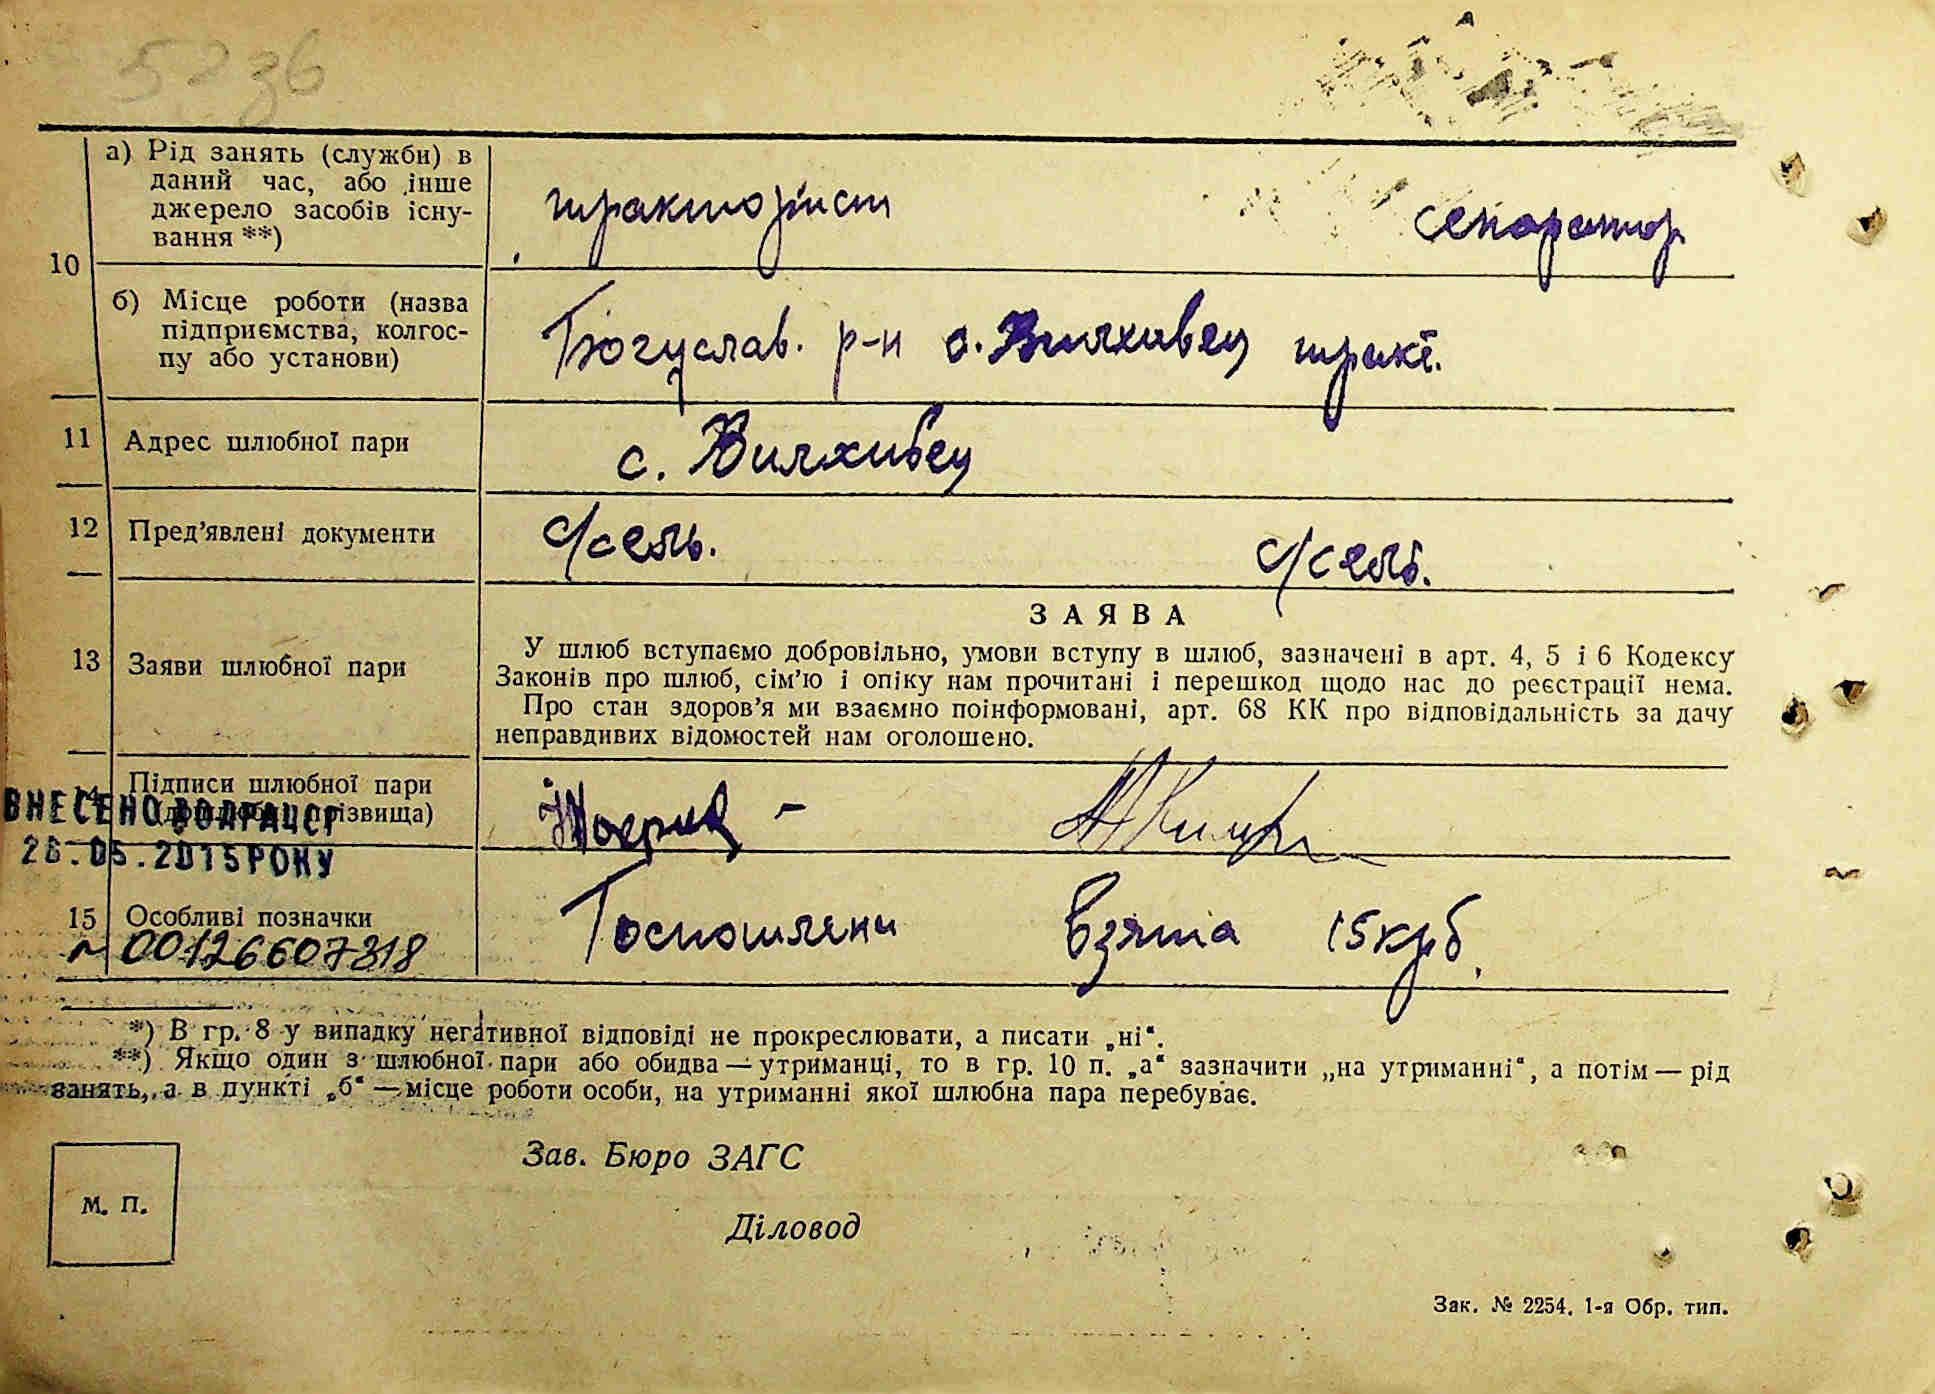 5236
а) Рід занять (служби) в
даний час, або інше
джерело засобів існу-
вання **)
тракторист
сепаратор
10
б) Місце роботи (назва
підприємства, колгос-
пу або установи)
Богуслав. р-н с. Вилхивец тракт.
11 Адрес шлюбної пари
с. Вилхивец
12 Пред’явлені документи
с/сель. с/сель.
ЗАЯВА
13 Заяви шлюбної пари
У шлюб вступаємо добровільно, умови вступу в шлюб, зазначені в арт. 4, 5 і 6 Кодексу
Законів про шлюб, сім’ю і опіку нам прочитані і перешкод щодо нас до реєстрації нема.
Про стан здоров’я ми взаємно поінформовані, арт. 68 КК про відповідальність за дачу
неправдивих відомостей нам оголошено.
14 Підписи шлюбної пари
(дошлюбні прізвища)
ВНЕСЕНО ВО ДРАЦСГ
26.05.2015 РОКУ
15 Особливі позначки
Госпошлени взята 15 крб.
№ 00126607818
*) В гр. 8 у випадку негативної відповіді не прокреслювати, а писати „ні“.
**) Якщо один з шлюбної пари або обидва — утриманці, то в гр. 10 п. „а“ зазначити „на утриманні“, а потім — рід
занять, а в пункті „б“ — місце роботи особи, на утриманні якої шлюбна пара перебуває.
Зав. Бюро ЗАГС
М. П.
Діловод
Зак. № 2254. 1-я Обр. тип.